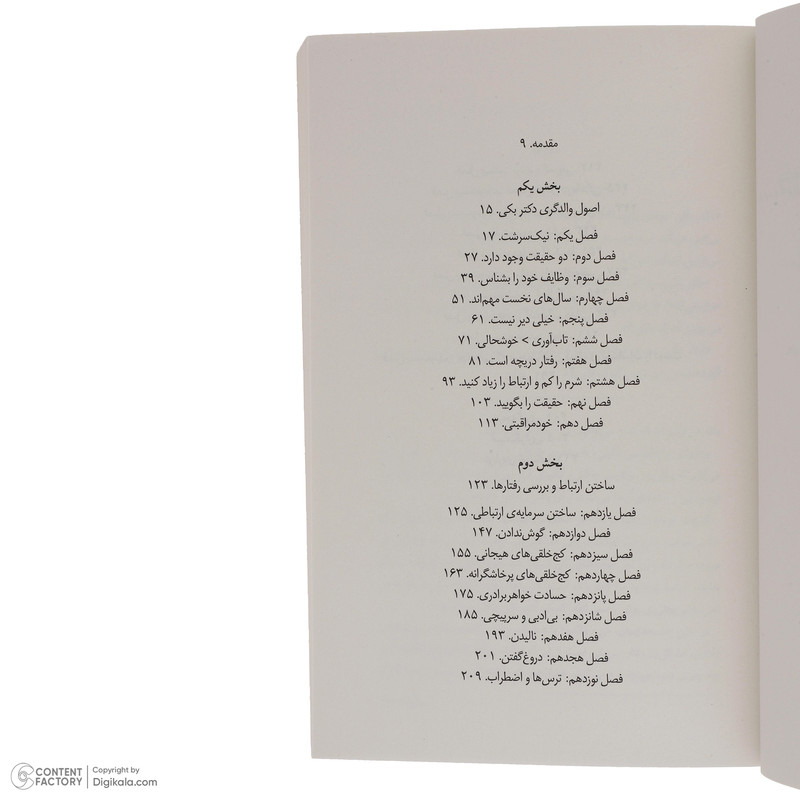 مقدمه. ۹
بخش یکم
اصول والدگری دکتر بکی. ۱۵
فصل یکم: نیک‌سرشت. ۱۷
فصل دوم: دو حقیقت وجود دارد. ۲۷
فصل سوم: وظایف خود را بشناس. ۳۹
فصل چهارم: سال‌های نخست مهم‌اند. ۵۱
فصل پنجم: خیلی دیر نیست. ۶۱
فصل ششم: تاب‌آوری > خوشحالی. ۷۱
فصل هفتم: رفتار دریچه است. ۸۱
فصل هشتم: شرم را کم و ارتباط را زیاد کنید. ۹۳
فصل نهم: حقیقت را بگویید. ۱۰۳
فصل دهم: خودمراقبتی. ۱۱۳
بخش دوم
ساختن ارتباط و بررسی رفتارها. ۱۲۳
فصل یازدهم: ساختن سرمایه‌ی ارتباطی. ۱۲۵
فصل دوازدهم: گوش‌ندادن. ۱۴۷
فصل سیزدهم: کج‌خلقی‌های هیجانی. ۱۵۵
فصل چهاردهم: کج‌خلقی‌های پرخاشگرانه. ۱۶۳
فصل پانزدهم: حسادت خواهربرادری. ۱۷۵
فصل شانزدهم: بی‌ادبی و سرپیچی. ۱۸۵
فصل هفدهم: نالیدن. ۱۹۳
فصل هجدهم: دروغ‌گفتن. ۲۰۱
فصل نوزدهم: ترس‌ها و اضطراب. ۲۰۹
CONTENT FACTORY
Copyright by
Digikala.com